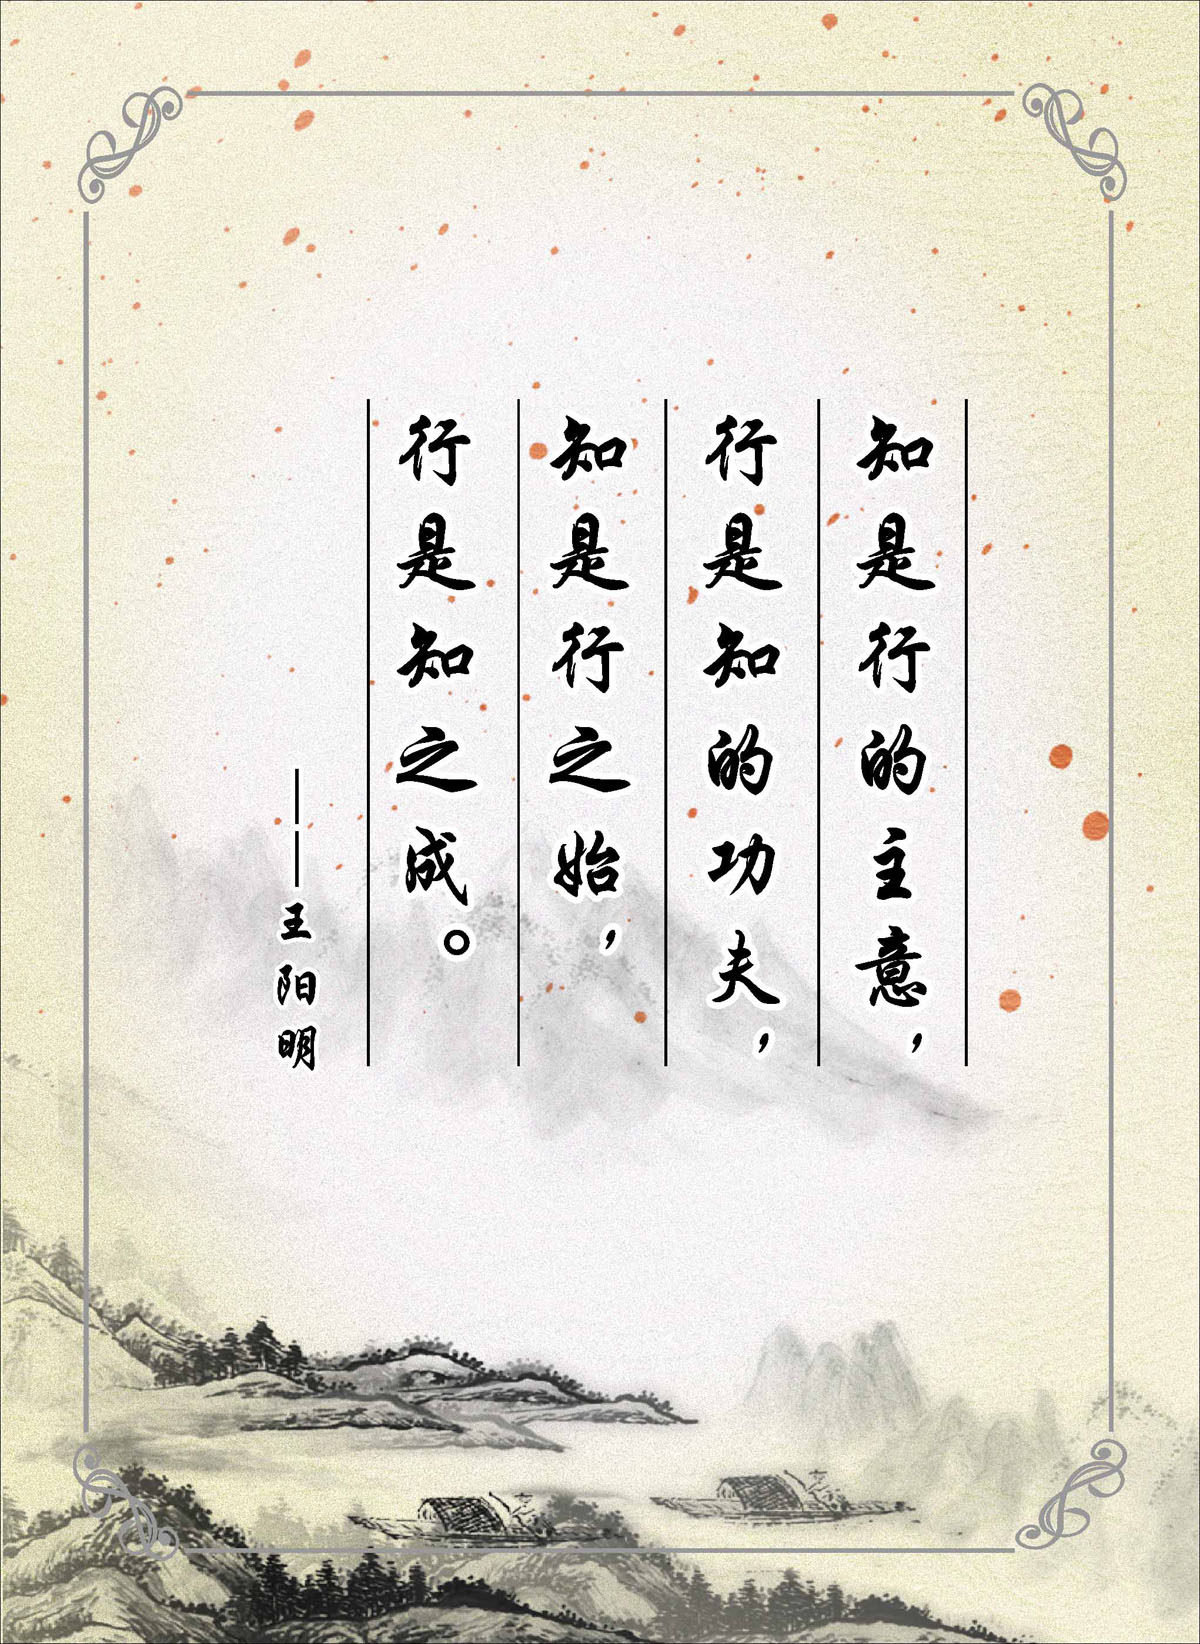 知是行的主意，
行是知的功夫，
知是行之始，
行是知之成。
——王阳明